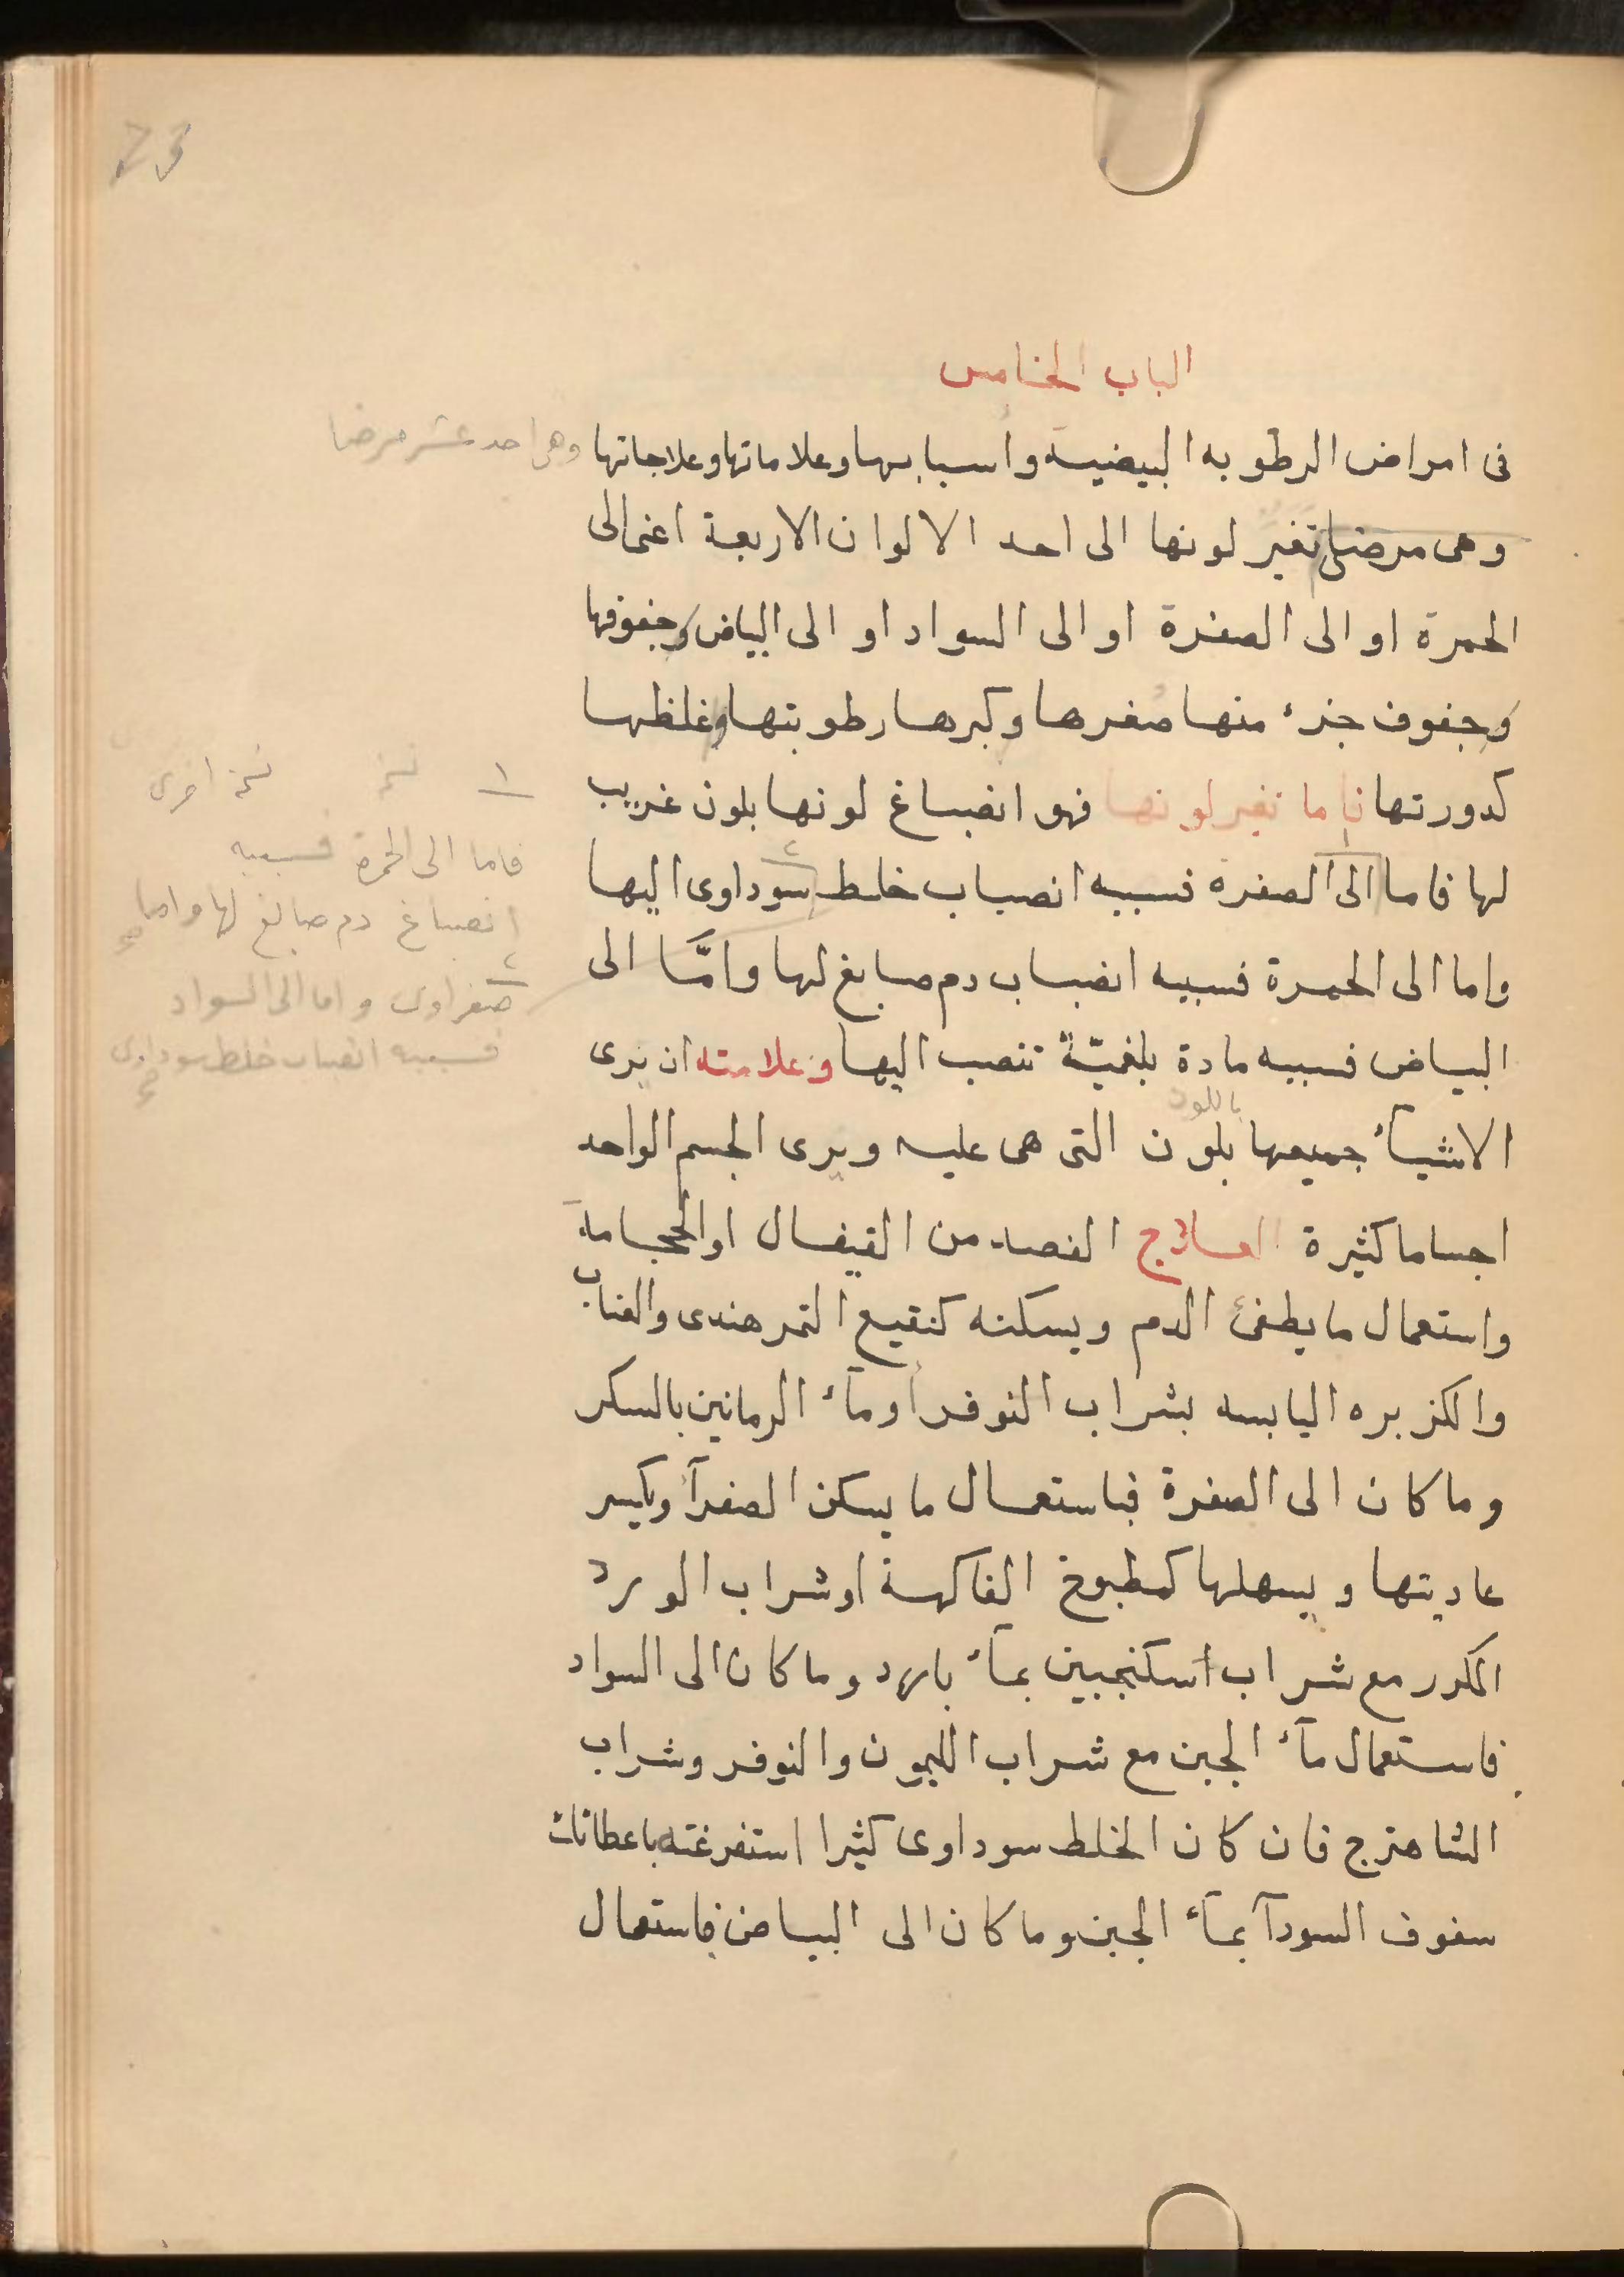 73
الباب الخامس
فى امراض الرطوبه البيضيه واسبابها وعلاماتها وعلاجاتها وهى احد عشر مرضا
وهى مرضى تغير لونها الى احد الالوان الاربعة اعنى الى
الحمرة او الى الصفرة او الى السواد او الى البياض وجفوفها
وجفوف جزء منها صغرها وكبرها رطوبتها وغلظها
كدورتها فاما تغير لونها فهو انصباغ لونها بلون غريب
لها فاما الى الصفره فسببه انصباب خلط سوداوى اليها
واما الى الحمرة فسببه انصباب دم صابغ لها وامَّا الى
البياض فسببه مادة بلغميّة تنصب اليها وعلامته ان يرى
باللون
الاشيآء جميعها بلون التى هى عليه ويرى الجسم الواحد
اجساما كثيرة العلاج الفصد من القيفال او الحجامة
واستعمال ما يطفئ الدم ويسكنه كنقيع التمر هندى والعناب
والكزبره اليابسه بشراب النوفر او مآء الرمانين بالسكر
وما كان الى الصفرة فباستعمال ما يسكن الصفرآء ويكسر
عاديتها ويسهلها كمطبوخ الفاكهة او شراب الورد
المكرر مع شراب اسكنجبين بمآء بارد وما كان الى السواد
فاستعمال مآء الجبن مع شراب الليمون والنوفر وشراب
الشاهترج فان كان الخلط سوداوى كثيرا استفرغته باعطائك
سفوف السودآ بمآء الجبن وما كان الى البياض فاستعمال
١ نسخه نسخه اخرى
فاما الى الحمرة فسببه
انصباغ دم صابغ لها واما
٢
صفراوى واما الى السواد
فسببه انصباب خلط سوداوى